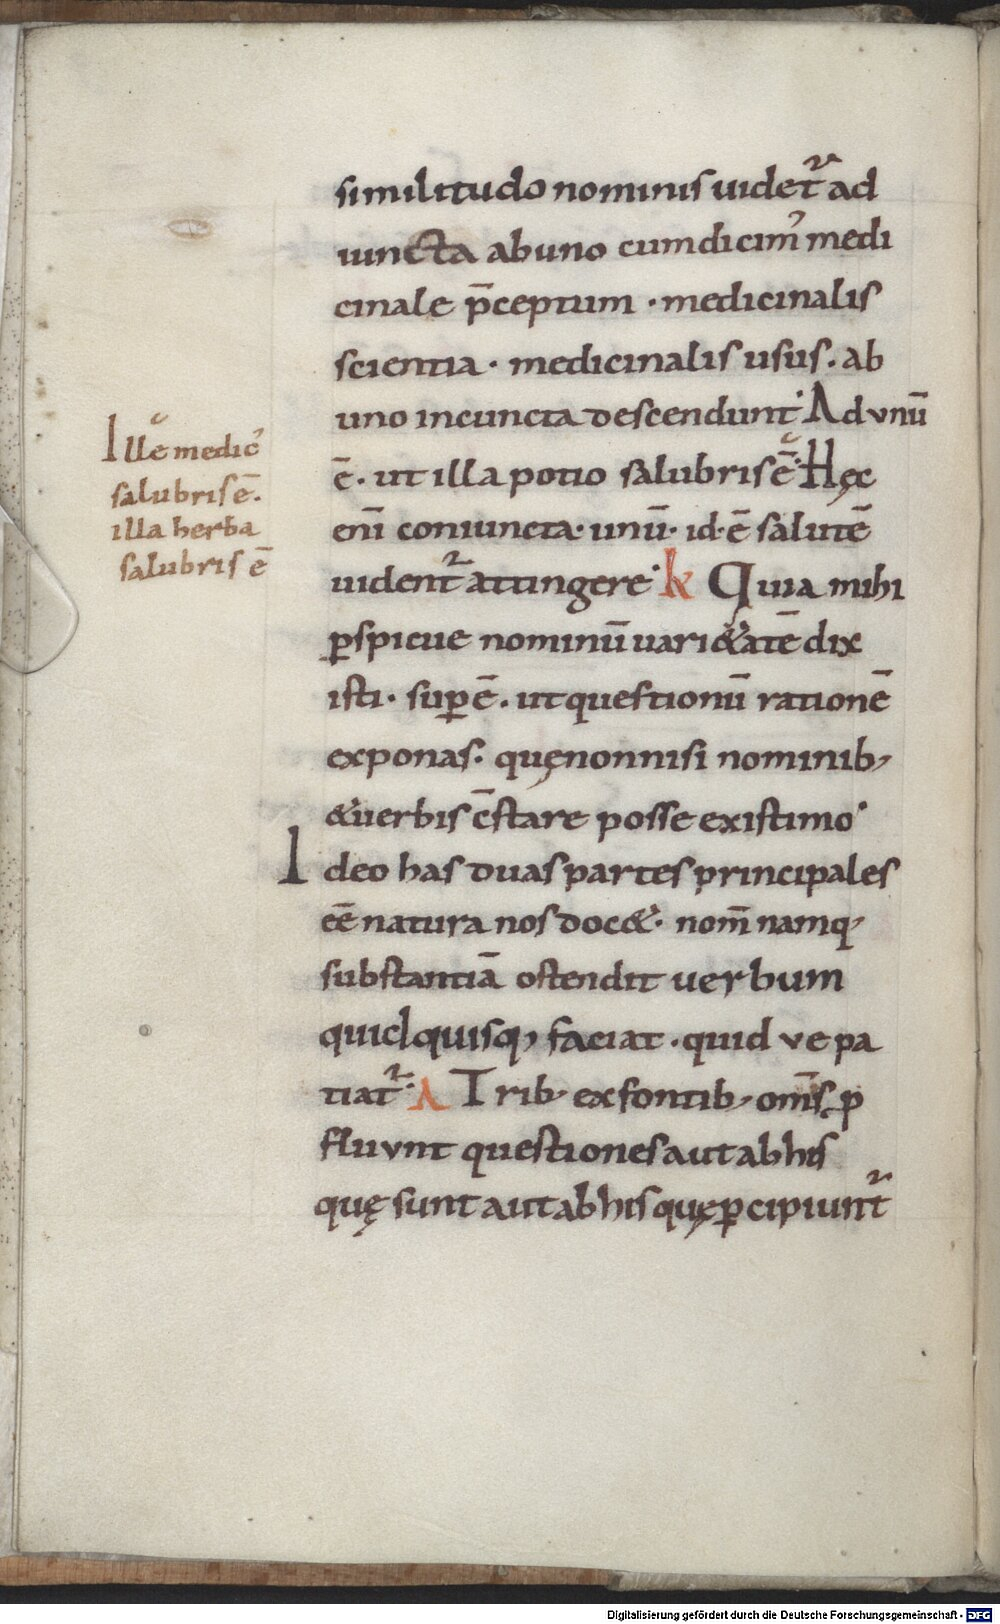 similitudo nominis uidet᷑ ad
iuncta ab uno cum dicim᾽ medi
cinale p̄ceptum · medicinalis
scientia · medicinalis usus · ab
uno in cuncta descendunt· Ad vnū
ē · ut illa potio salubris ē· Hęc
eni coniuncta · unū · id · ē salutē
uident᷑ attingere· k Quia mihi
ꝑspicue nominū uari&atē dix
isti · suꝑ ē · ut questionū rationē
exponas · quę non nisi nominib,
& uerbis c̄stare posse existimo·
Ideo has duas partes principales
eē natura nos doc& · nom̄ namq,
substantiā ostendit uerbum
quid quisq, faciat · quid ve pa
tiat᷑· A Trib, ex fontib, om̄s ꝓ
fluvnt questiones aut ab his
quę sunt aut ab his quę ꝑcipiunt᷑
Ille medic᾽
salubris ē.
illa herba
salubris ē
Digitalisierung gefördert durch die Deutsche Forschungsgemeinschaft - DFG